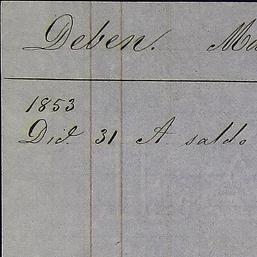 Deben. Ma
1853
Dic.e 31 A saldo